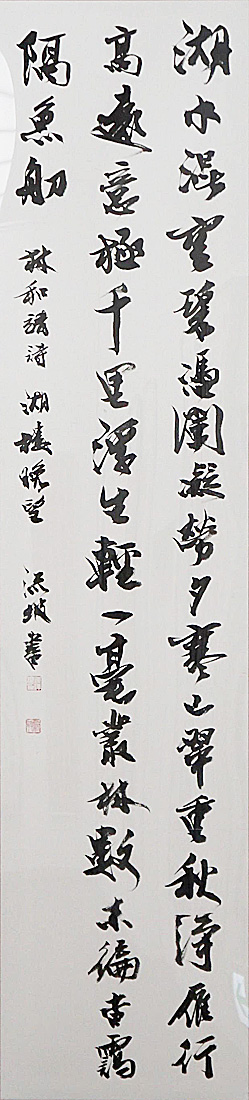 湖水混空碧憑闌凝勞夕寒山翠重秋淨雁行
高遠意極千里浮生輕一毫叢林數未徧杳靄
隔魚舠 林和靖詩 湖樓晚望 書